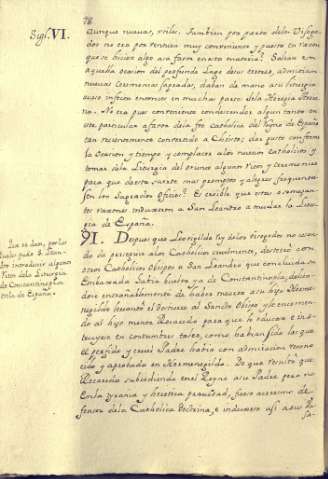 78
Sigl. VI.
Aunque nuevas, utiles. Tambien por parte delos Visigo-
dos no era por ventura muy conveniente y puesto en razon
que se hiciere algo asi
aquella ocasion del profundo Lago
nuevas Ceremonias sagradas, daban de mano asu liturgia
que se infecto entonces en muchas partes dela Heregia Arria-
na. No era pues conveniente condescender algun tanto en
este particular afavor dela fee Catholica del Reyno de España
tan recientemente convertido a Christo; dar gusto conforme
la ocasion y tiempo y complacer alos nuevos catholicos y
tomar dela Liturgia del oriente algunos Ritos y ceremonias
para que de esta suerte mas promptos y alegres frequenta-
sen los Sagrados Oficios? Es creible que estas o semejan-
tes razones induxeron a San Leandro a mudar la Litur-
gia de España.
Las se dan, por las
quales pudo S. Lean-
dro introducir algunos
Ritos dela Liturgia
de Constantinopla
en la de España.
91. Despues que Leovigildo Rey delos Visigodos no cesa-
do de perseguir alos Catholicos cruelmente, desterró con
otros Catholicos Obispos a San Leandro que concluida su
Embaxada havia buelto ya de Constantinopla, dolien-
dose entrañablemente de haber muerto asu hijo Herme-
negildo levantó el destierro al Santo Obispo y le encomen-
dó al hijo menor Recaredo para que le educase e ins-
truyese en costumbres tales, como habian sido las que
el perfido y cruel Padre habia con admiracion recono-
cido y aprobado en Hermenegildo. De que resultó que
Recaredo subcediendo en el Reyno asu Padre pero no
en la tyrania y heretica pravedad, fuese acerrimo de-
fensor dela Catholica Doctrina, e induxese asi asu Es-
pa-